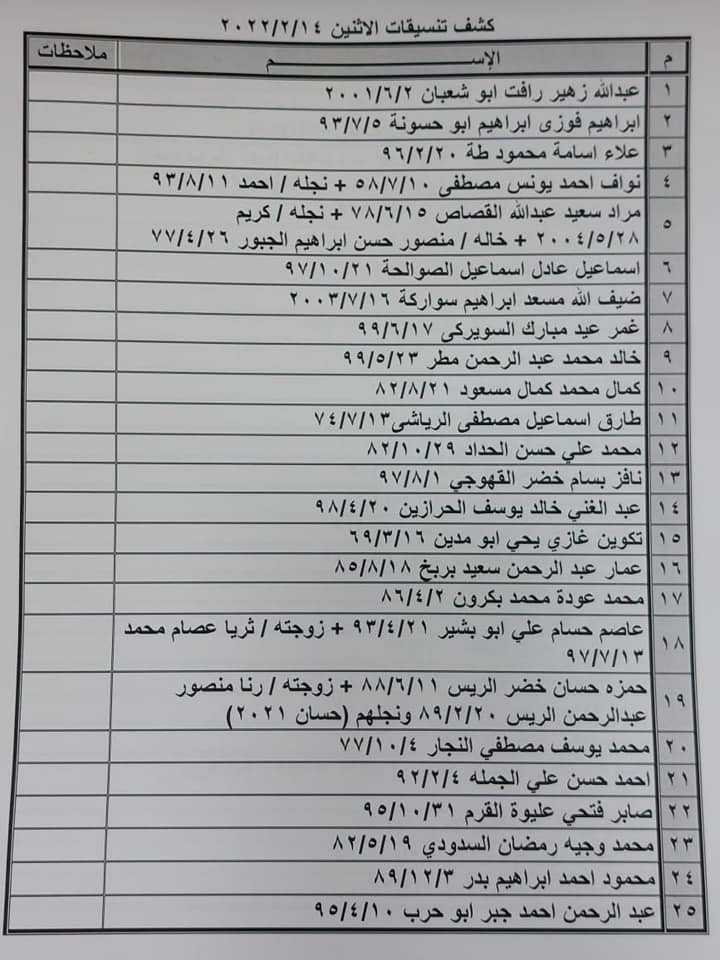 كشف تنسيقات الاثنين ٢٠٢٢/٢/١٤
م الإســـــــــــــــــم ملاحظات
١ عبدالله زهير رافت ابو شعبان ٢٠٠١/٦/٢
٢ ابراهيم فوزى ابراهيم ابو حسونة ٩٣/٧/٥
٣ علاء اسامة محمود طة ٩٦/٢/٢٠
٤ نواف احمد يونس مصطفى ٥٨/٧/١٠ + نجله / احمد ٩٣/٨/١١
٥ مراد سعيد عبدالله القصاص ٧٨/٦/١٥ + نجله / كريم
٢٠٠٤/٥/٢٨ + خاله / منصور حسن ابراهيم الجبور ٧٧/٤/٢٦
٦ اسماعيل عادل اسماعيل الصوالحة ٩٧/١٠/٢١
٧ ضيف الله مسعد ابراهيم سواركة ٢٠٠٣/٧/١٦
٨ غمر عيد مبارك السويركى ٩٩/٦/١٧
٩ خالد محمد عبد الرحمن مطر ٩٩/٥/٢٣
١٠ كمال محمد كمال مسعود ٨٢/٨/٢١
١١ طارق اسماعيل مصطفى الرياشى ٧٤/٧/١٣
١٢ محمد علي حسن الحداد ٨٢/١٠/٢٩
١٣ نافز بسام خضر القهوجي ٩٧/٨/١
١٤ عبد الغني خالد يوسف الحرازين ٩٨/٤/٢٠
١٥ تكوين غازي يحي ابو مدين ٦٩/٣/١٦
١٦ عمار عبد الرحمن سعيد بربخ ٨٥/٨/١٨
١٧ محمد عودة محمد بكرون ٨٦/٤/٢
١٨ عاصم حسام علي ابو بشير ٩٣/٤/٢١ + زوجته / ثريا عصام محمد
٩٧/٧/١٣
١٩ حمزه حسان خضر الريس ٨٨/٦/١١ + زوجته / رنا منصور
عبدالرحمن الريس ٨٩/٢/٢٠ ونجلهم (حسان ٢٠٢١)
٢٠ محمد يوسف مصطفي النجار ٧٧/١٠/٤
٢١ احمد حسن علي الجمله ٩٢/٢/٤
٢٢ صابر فتحي عليوة القرم ٩٥/١٠/٣١
٢٣ محمد وجيه رمضان السدودي ٨٢/٥/١٩
٢٤ محمود احمد ابراهيم بدر ٨٩/١٢/٣
٢٥ عبد الرحمن احمد جبر ابو حرب ٩٥/٤/١٠